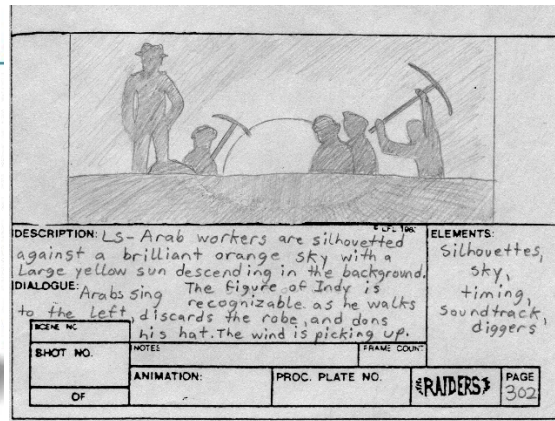 © LFL 198
DESCRIPTION: LS- Arab workers are silhouetted
against a brilliant orange sky with a
Large yellow sun descending in the background.
DIALOGUE: Arabs sing The figure of Indy is
recognizable as he walks
to the left, discards the robe, and dons
his hat. The wind is picking up.
ELEMENTS:
Silhouettes,
sky,
timing,
soundtrack,
diggers
SCENE NO.
SHOT NO.
OF
NOTES
FRAME COUNT
ANIMATION:
PROC. PLATE NO.
RAIDERS
PAGE
302